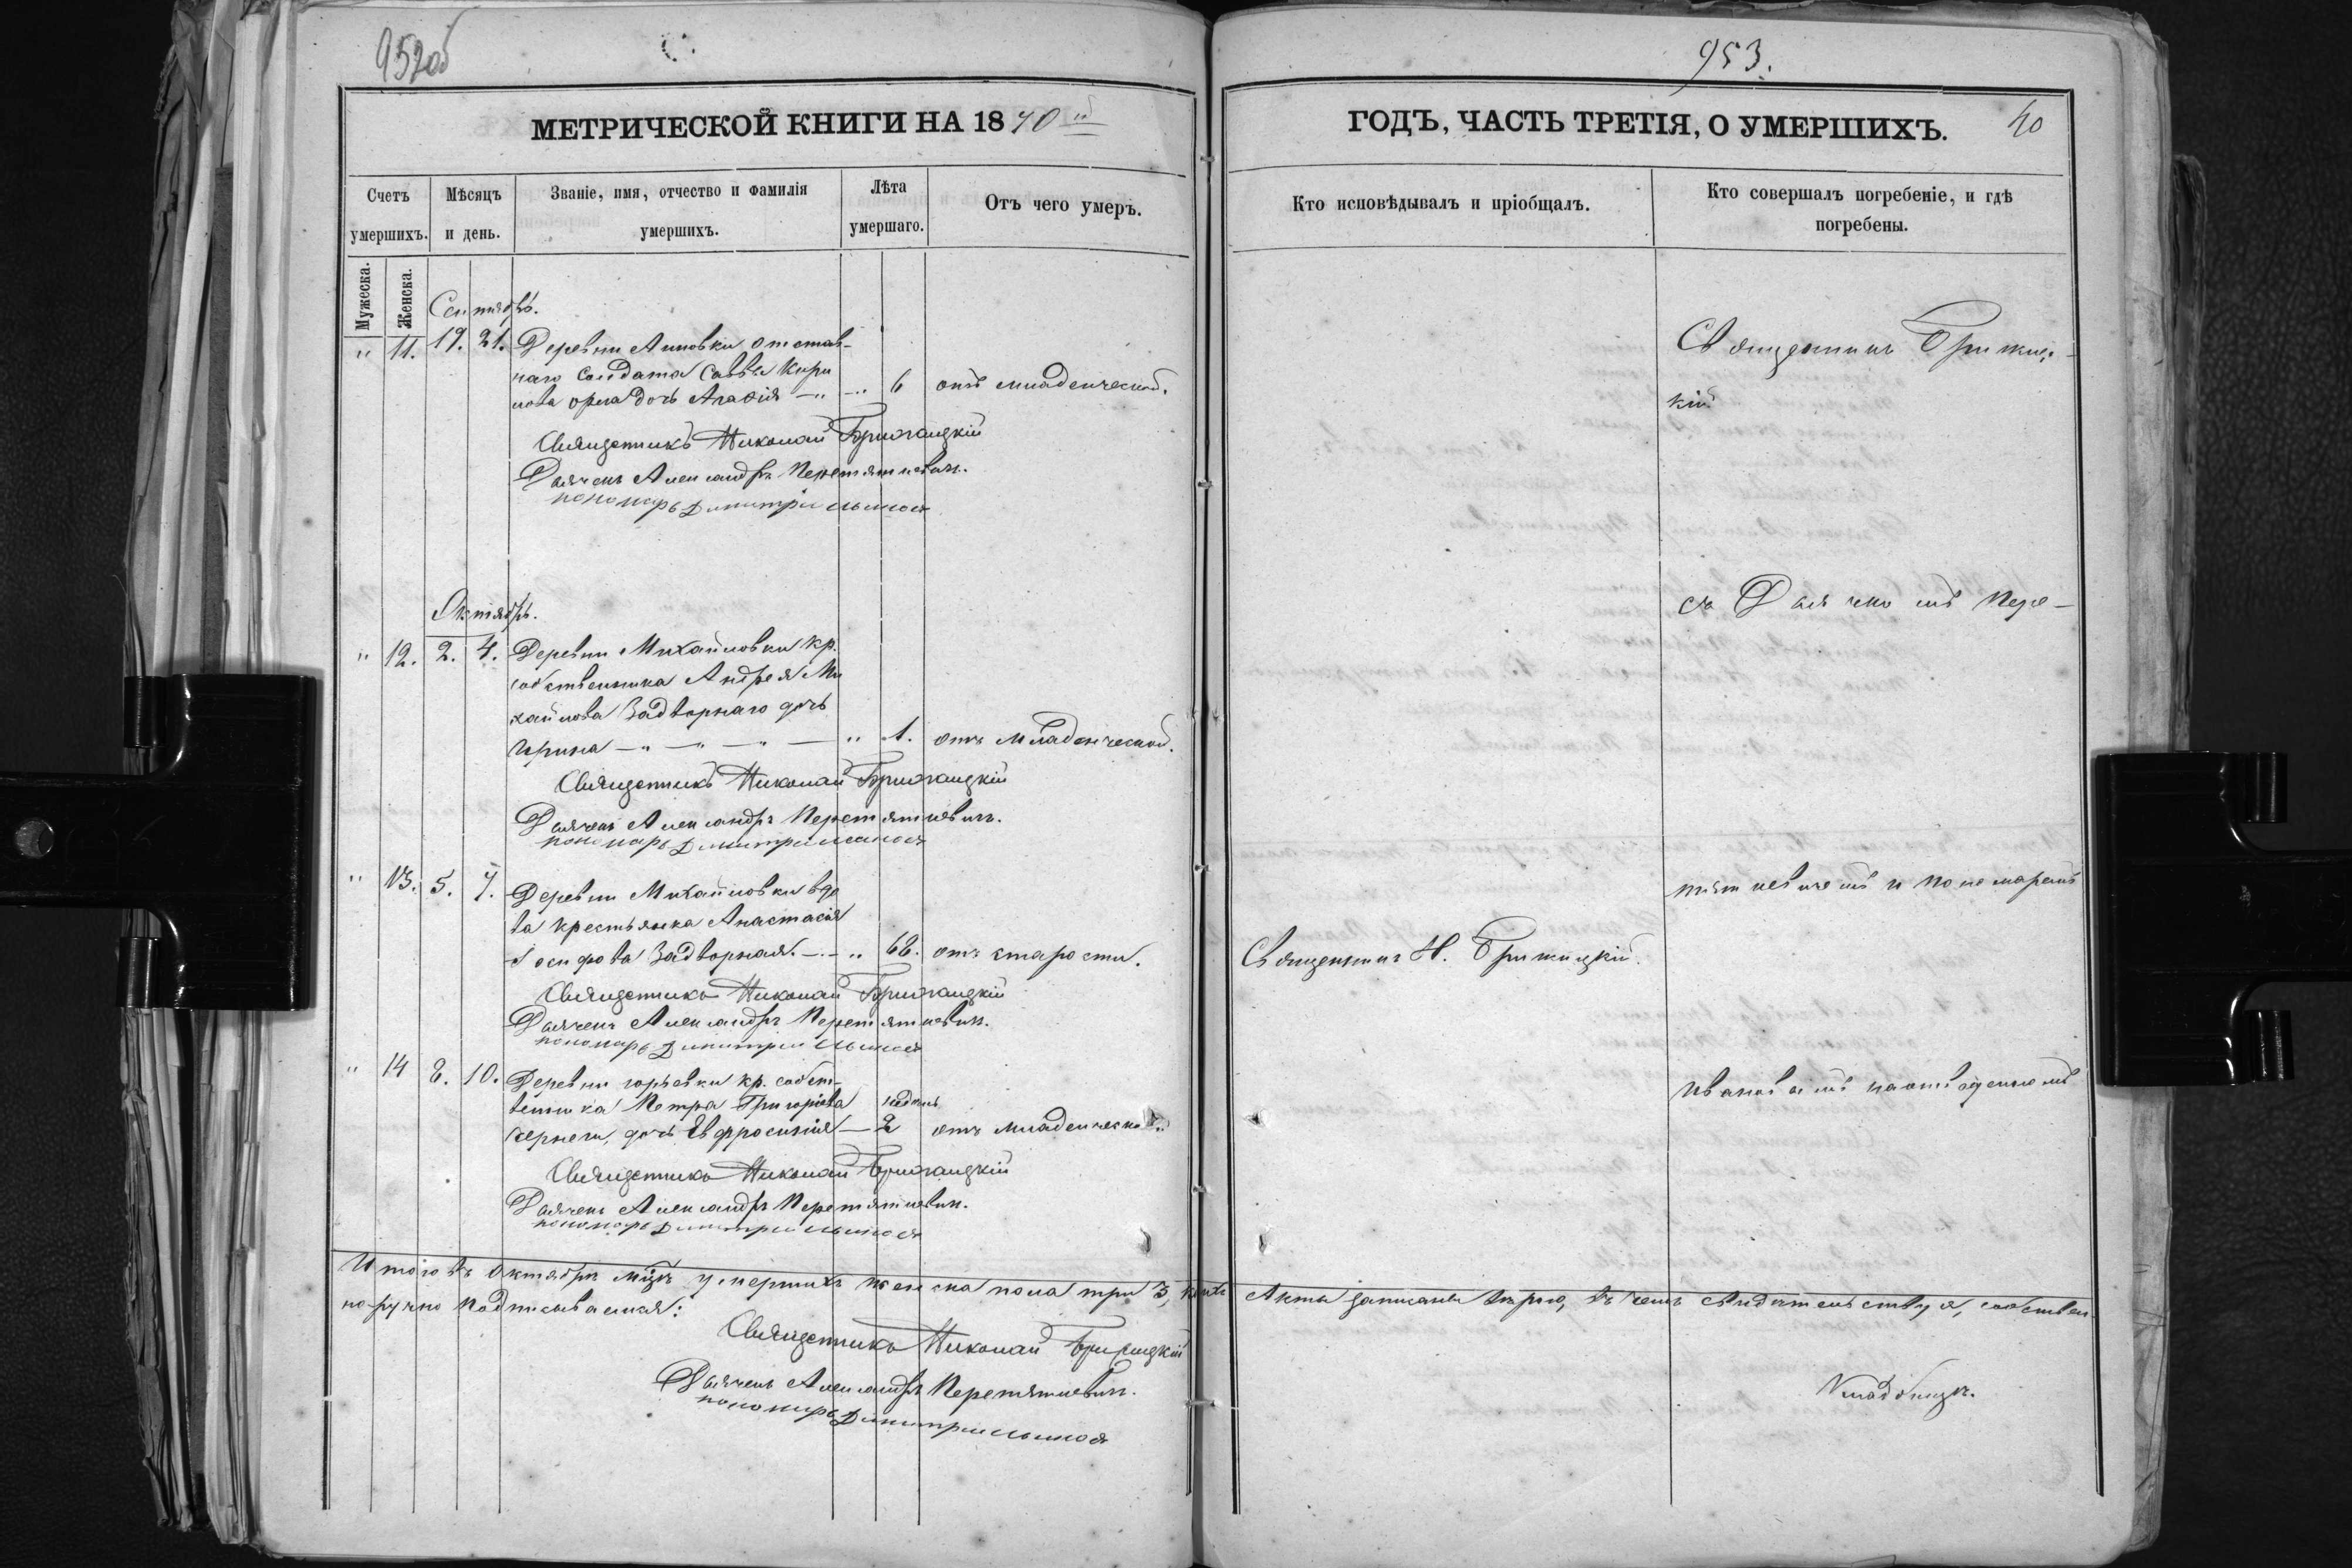 952об
953.
МЕТРИЧЕСКОЙ КНИГИ НА 1870ый
ГОДЪ, ЧАСТЬ ТРЕТІЯ, О УМЕРШИХЪ.
40
Счетъ умершихъ.
Мѣсяцъ и день.
Званіе, имя, отчество и фамилія умершихъ.
Лѣта умершаго.
Отъ чего умеръ.
Кто исповѣдывалъ и пріобщалъ.
Кто совершалъ погребеніе, и гдѣ погребены.
Мужеска.
Женска.
Сентябрь.
" 11. 19. 21. Деревни Анновки отстав-
наго солдата Саввы Кири
лова Орла дочь Агафія — " — " 6 отъ младенческой.
Священникъ Николай Брижицкій
Дьячекъ Александръ Перетяткевич.
пономарь Димитрій
Священникъ Брижиц-
кій
Октябрь.
съ Дьячкомъ Пере-
" 12. 2. 4. Деревни Михайловки кр.
собственника Андрея Ми
хайлова Задворнаго дочь
Ирина — " — " — " — " 1. отъ младенческой.
Священникъ Николай Брижицкій
Дьячекъ Александръ Перетяткевич.
пономарь Димитрій
" 13. 5. 7. Деревни Михайловки вдо
ва крестьянка Анастасія
Іосифова Задворная. — . — " 68. отъ старости.
Священникъ Н. Брижицкій.
тяткевичемъ и пономаремъ
Священникъ Николай Брижицкій
Дьячекъ Александръ Перетяткевич.
пономарь Димитрій
" 14 8. 10. Деревни Юрьевки кр. собст-
венника Петра Григорієва недель
дочь Евфросинія — 2 отъ младенческой.
на отведенномъ
Священникъ Николай Брижицкій
Дьячекъ Александръ Перетяткевич.
пономарь Димитрій
Итого въ Октябрѣ мцѣ умершихъ женска пола три 3,
Акты записаны вѣрно, въ чемъ свидѣтельствуя, собствен
норучно подписываемся:
Священникъ Николай Брижицкій
Дьячекъ Александръ Перетяткевич.
пономарь Димитрій
Кладбищѣ.